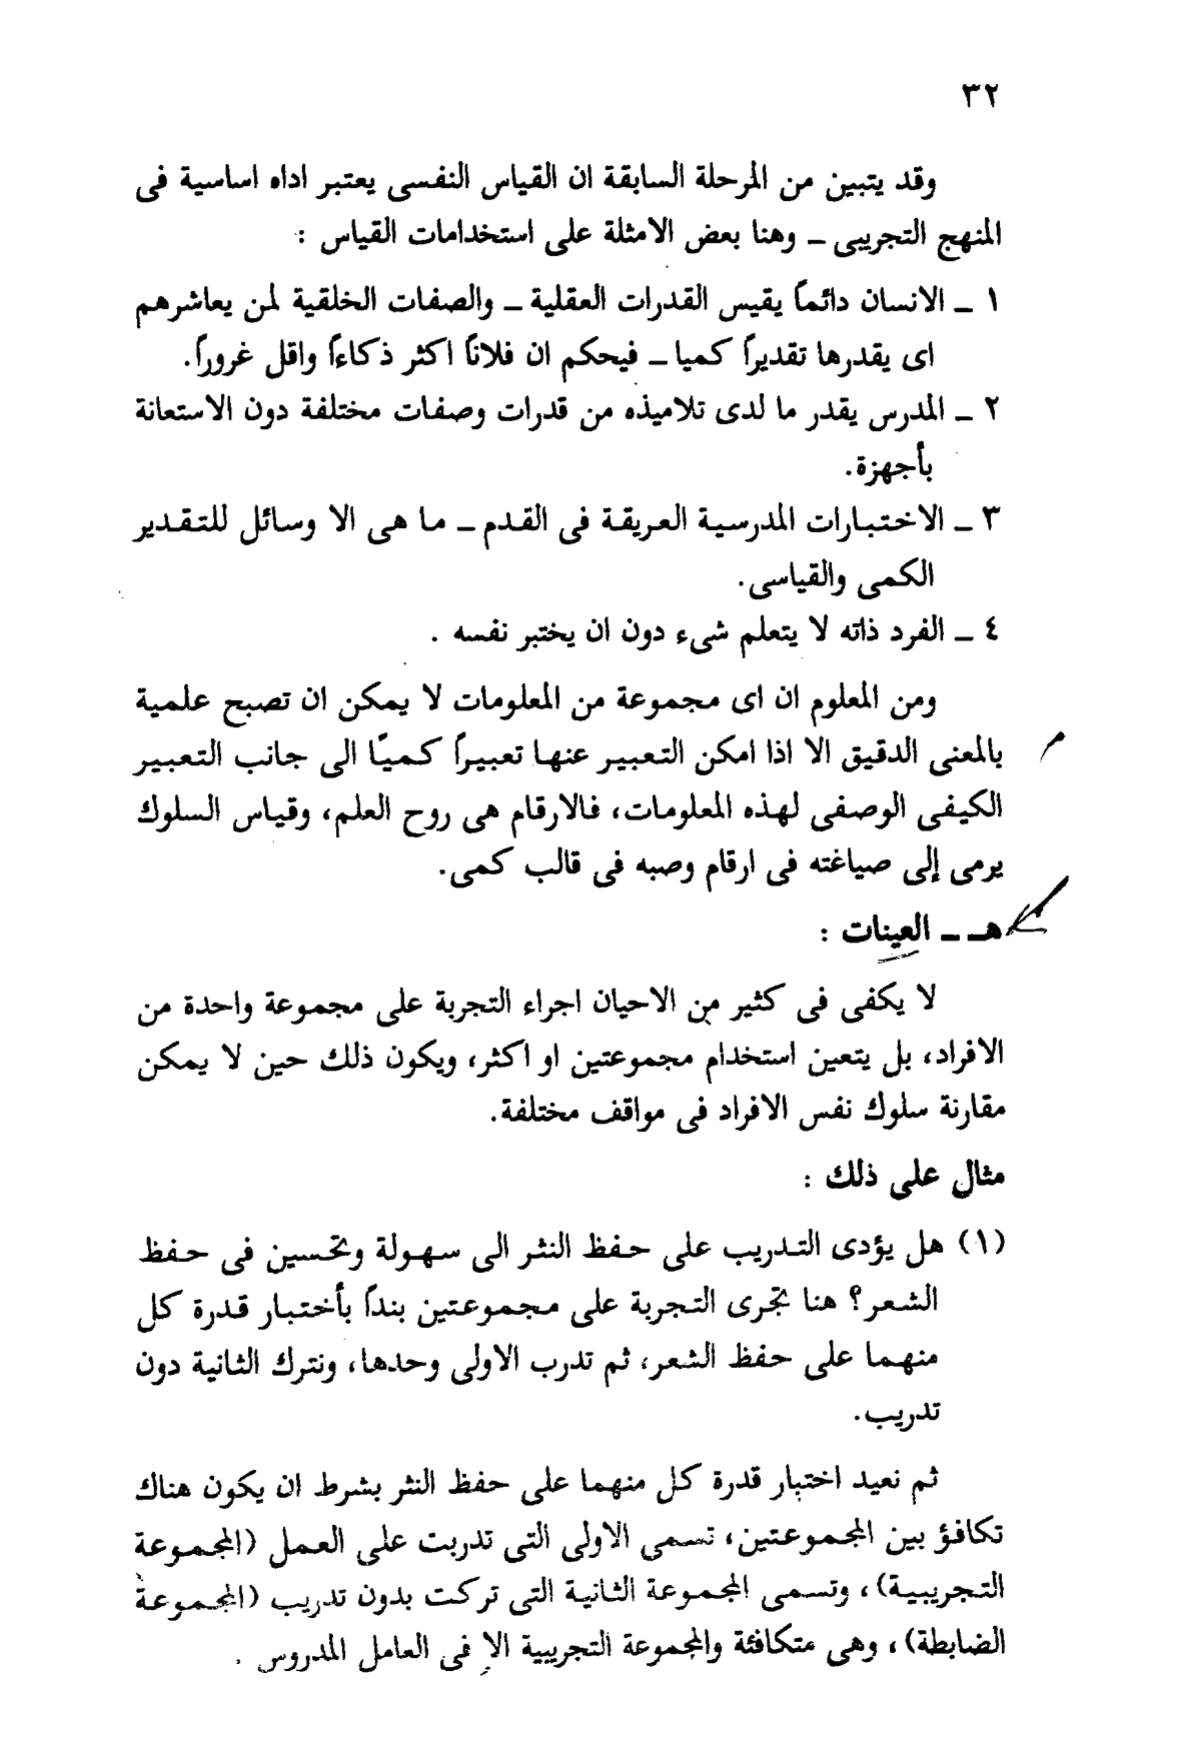 ٣٢
وقد يتبين من المرحلة السابقة ان القياس النفسى يعتبر اداه اساسية فى
المنهج التجريبى ـ وهنا بعض الامثلة على استخدامات القياس :
١ ـ الانسان دائماً يقيس القدرات العقلية ـ والصفات الخلقية لمن يعاشرهم
اى يقدرها تقديراً كميا ـ فيحكم ان فلاناً اكثر ذكاءاً واقل غروراً.
٢ ـ المدرس يقدر ما لدى تلاميذه من قدرات وصفات مختلفة دون الاستعانة
بأجهزة.
٣ ـ الاختبارات المدرسية العريقة فى القدم ـ ما هى الا وسائل للتقدير
الكمى والقياسى.
٤ ـ الفرد ذاته لا يتعلم شىء دون ان يختبر نفسه .
ومن المعلوم ان اى مجموعة من المعلومات لا يمكن ان تصبح علمية
بالمعنى الدقيق الا اذا امكن التعبير عنها تعبيراً كميًا الى جانب التعبير
الكيفى الوصفى لهذه المعلومات، فالارقام هى روح العلم، وقياس السلوك
يرمى إلى صياغته فى ارقام وصبه فى قالب كمى.
هـ ـ العينات :
لا يكفى فى كثير من الاحيان اجراء التجربة على مجموعة واحدة من
الافراد، بل يتعين استخدام مجموعتين او اكثر، ويكون ذلك حين لا يمكن
مقارنة سلوك نفس الافراد فى مواقف مختلفة.
مثال على ذلك :
(١) هل يؤدى التدريب على حفظ النثر الى سهولة وتحسين فى حفظ
الشعر؟ هنا تجرى التجربة على مجموعتين بندأ بأختبار قدرة كل
منهما على حفظ الشعر، ثم تدرب الاولى وحدها، ونترك الثانية دون
تدريب.
ثم نعيد اختبار قدرة كل منهما على حفظ النثر بشرط ان يكون هناك
تكافؤ بين المجموعتين، تسمى الاولى التى تدربت على العمل (المجموعة
التجريبية)، وتسمى المجموعة الثانية التى تركت بدون تدريب (المجموعة
الضابطة)، وهى متكافئة والمجموعة التجريبية الا فى العامل المدروس .